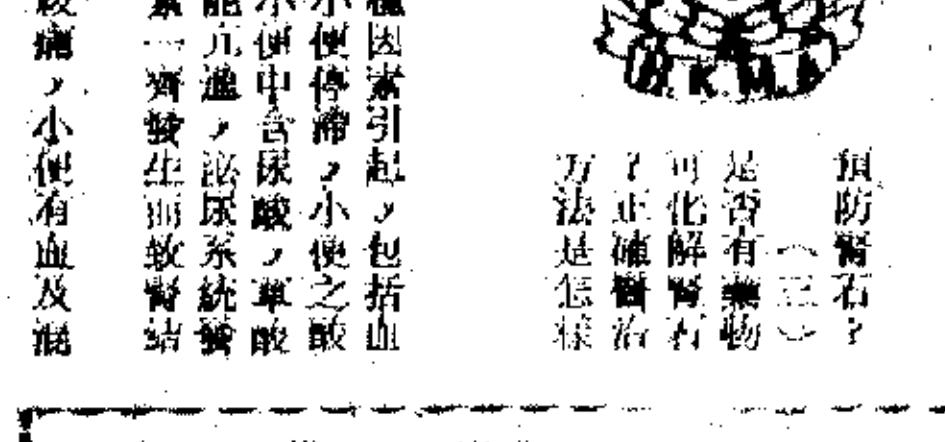 H.K.M.A
預防腎石?
(三)
是否有藥物
可化解腎石
?正確醫治
方法是怎樣
因素引起,包括血
小便停滯,小便之酸
小便中含尿酸,草酸
能亢進,泌尿系統發
素一齊發生而致腎結
痛,小便有血及混